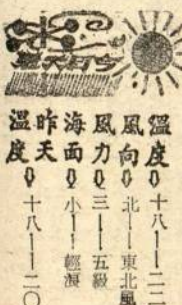 今天天氣
溫度⇩十八——二二
風向⇩北——東北風
風力⇩三——五級
海面⇩小——輕浪
昨天
溫度⇩十八——二〇